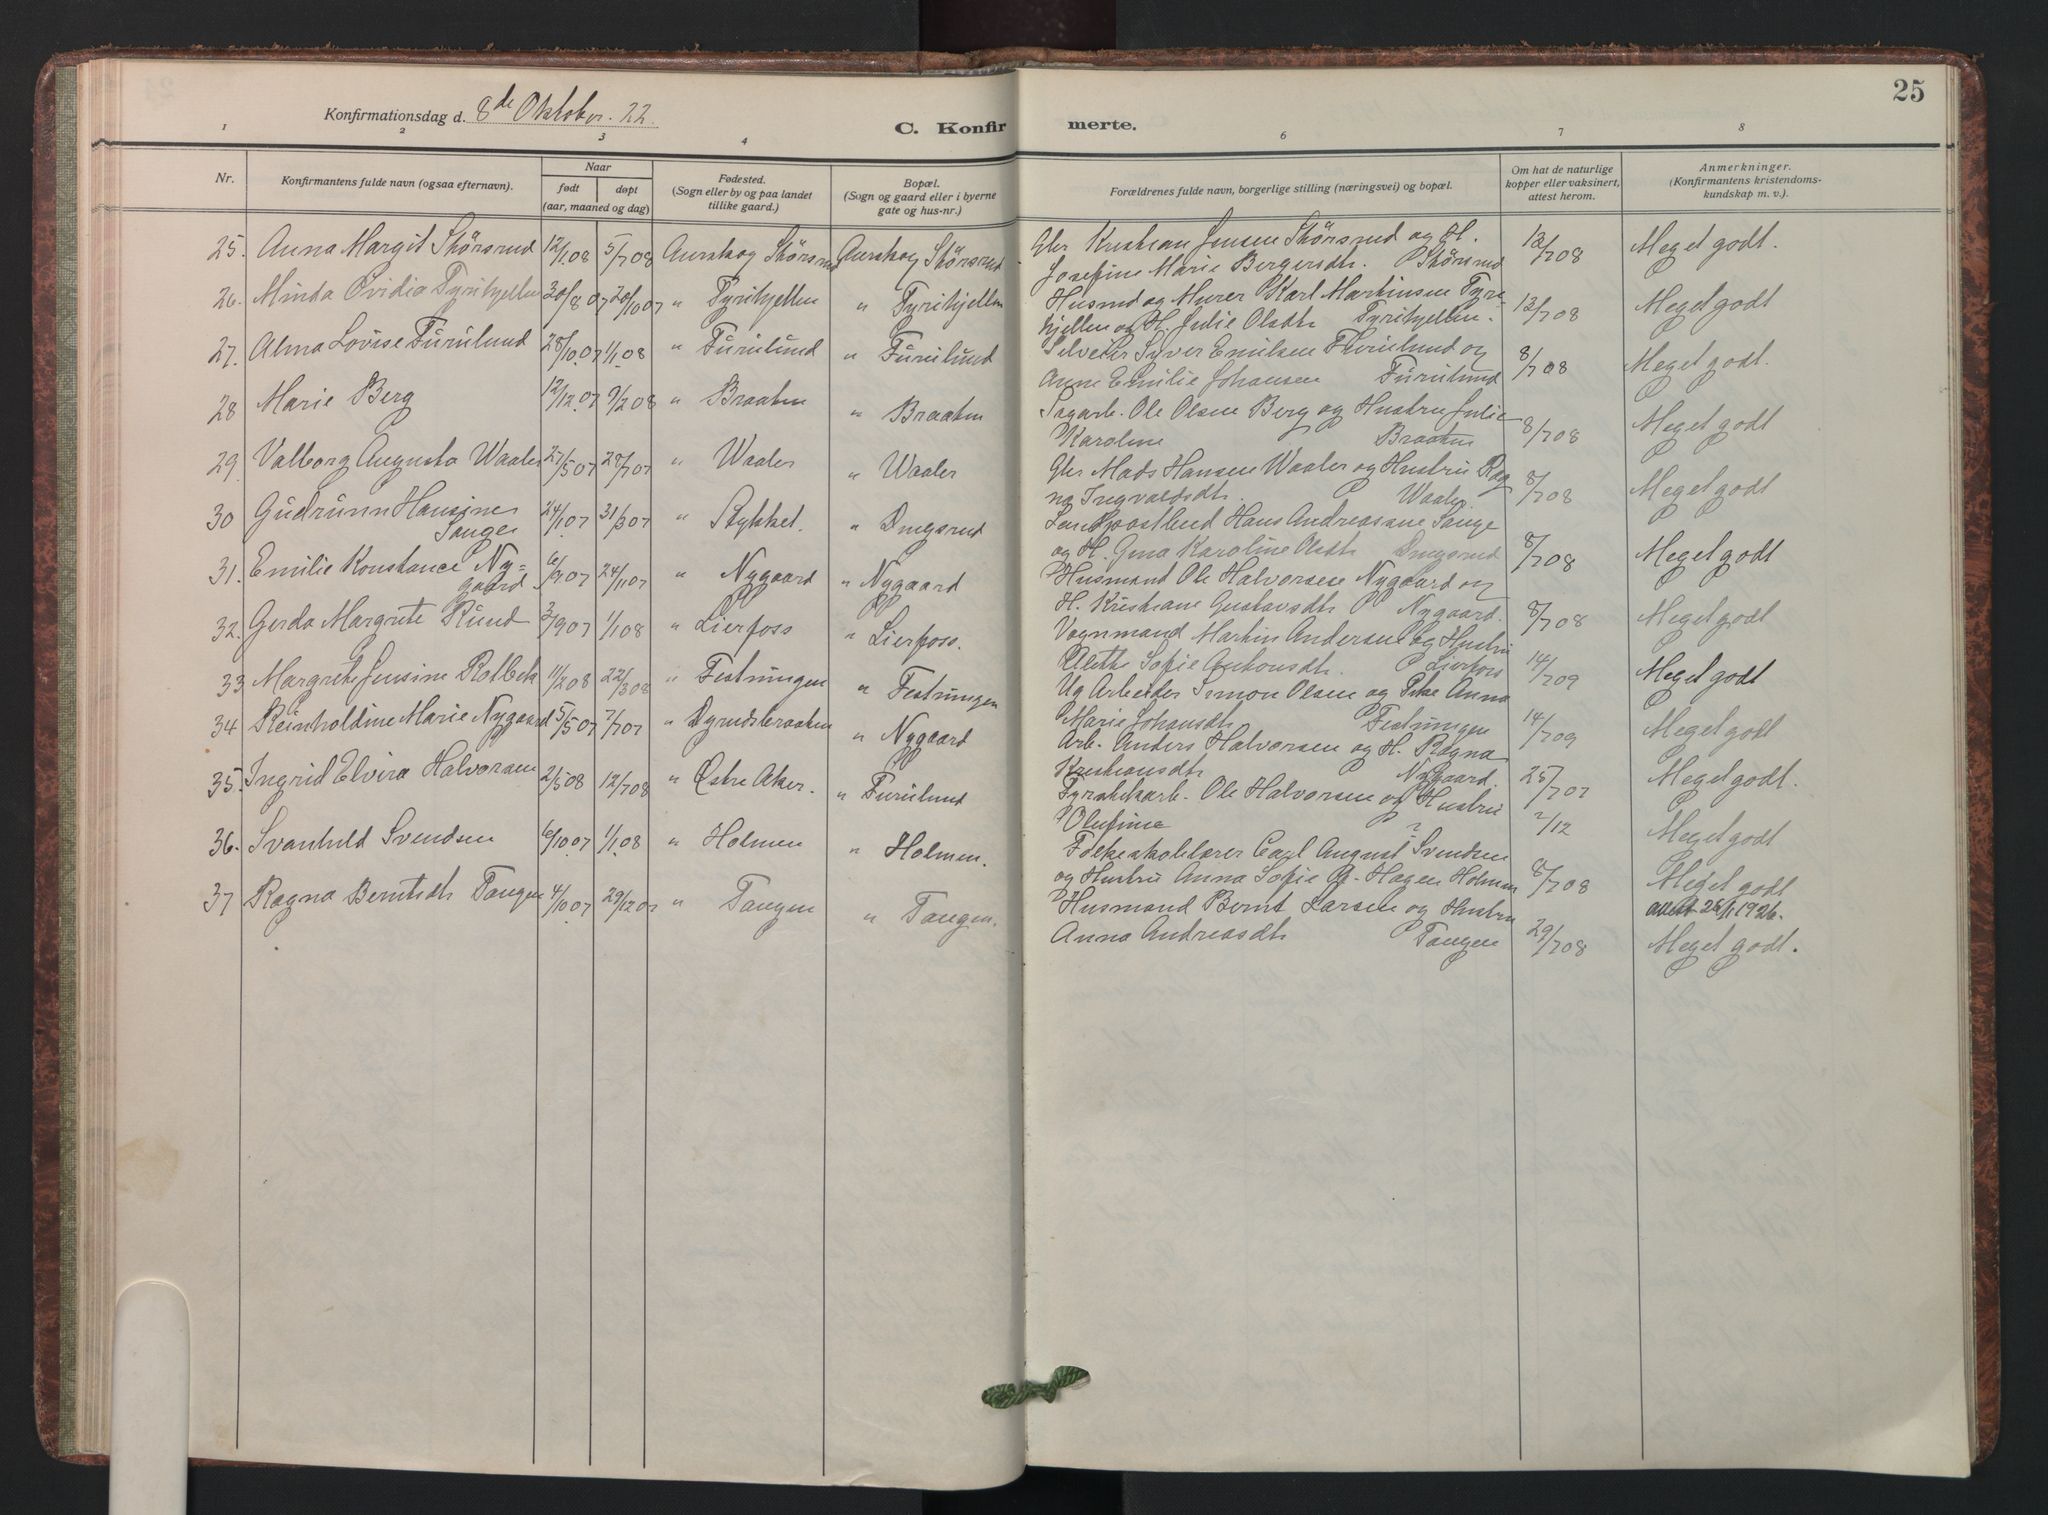 25
Konfirmationsdag d. 8de Oktober. 22
C. Konfirmerte.
1 2 3 4 6 7 8
Nr.
Konfirmantens fulde navn (ogsaa efternavn).
Naar
født døpt
(aar, maaned og dag)
Fødested.
(Sogn eller by og paa landet
tillike gaard.)
Bopæl.
(Sogn og gaard eller i byerne
gate og hus-nr.)
Forældrenes fulde navn, borgerlige stilling (næringsvei) og bopæl.
Om hat de naturlige
kopper eller vaksinert,
attest herom.
Anmerkninger.
(Konfirmantens kristendoms-
kundskap m. v.).
25. Anna Margit Skørsrud 12/1.08 5/7 08 Aurskog Skørsrud Aurskog Skørsrud
Gbr Kristian Jensen Skørsrud og H.
Josefine Marie Bergersdtr. Skørsrud
13/7 08 Meget godt.
26. Minda Ovidia Tyrihjellen 30/8 07 20/10 07 " Tyrihjellen " Tyrihjellen
Husmd og Murer Karl Martinsen Tyri-
hjellen og H. Julie Olsdtr Tyrihjellen.
13/7 08 Meget godt
27. Alma Lovise Furulund 28/10.07 1/1.08 " Furulund " Furulund
Selveier Syver Emilsen Furulund og
Anne Emilie Johansen Furulund
8/7 08 Meget godt.
28 Marie Berg 12/12.07 9/2 08 " Braaten " Braaten
Sagarb. Ole Olsen Berg og Hustru Julie
Karoline Braaten
8/7 08 Meget godt
29. Valborg Augusta Waaler 27/5 07 28/7 07 " Waaler " Waaler
Gbr Mads Hansen Waaler og Hustru Rag
na Ingvaldsdtr. Waaler.
8/7 08 Meget godt
30 Gudrunn Hansine 24/1.07 31/3 07 " Stykket. " Dingsrud
Sauge
Landpostbud Hans Andreassen Sauge
og H. Gina Karoline Olsdtr Dingsrud
8/7 08 Meget godt
31. Emilie Konstance Ny- 6/9 07 24/11 07 " Nygaard " Nygaard
gaard.
Husmand Ole Halvorsen Nygaard og
H. Kristiane Gustavsdtr Nygaard.
8/7 08 Meget godt
32. Gerda Margrete Rund 3/9 07 1/1 08 " Lierfoss " Lierfoss.
Vognmand Martin Andersen og Hustru
Alette Sofie Antonsdtr. Lierfoss
14/7 09 Meget godt
33 Margrete Jensine Rolbek 11/2 08 22/3 08 " Festningen " Festningen
Ug Arbeider Simon Olsen og Pike Anna
Marie Johansdtr Festningen
14/7 09 Meget godt
34 Reinholdine Marie Nygaard 5/5 07 7/7 07 " " Nygaard
Arb. Anders Halvorsen og H. Ragna
Kristiansdtr Nygaard.
25/7 07 Meget godt.
35. Ingrid Elvira Halvorsen 2/5 08 12/7 08 " Østre Aker. " Furulund
Fyrstikkarb. Ole Halvorsen og Hustru
Olufine ?
?/12 Meget godt
36. Svanhild Svendsen 6/10.07 1/1.08 " Holmen " Holmen.
Folkeskolelærer Carl August Svendsen
og Hustru Anna Sofie f. Hagen Holmen
8/7 08 Meget godt
attest 26/1 1926.
37 Ragna Berntsdtr Tangen 4/10 07 29/12 07 " Tangen " Tangen.
Husmand Bernt Larsen og Hustru
Anna Andreasdtr Tangen
29/7 08 Meget godt.